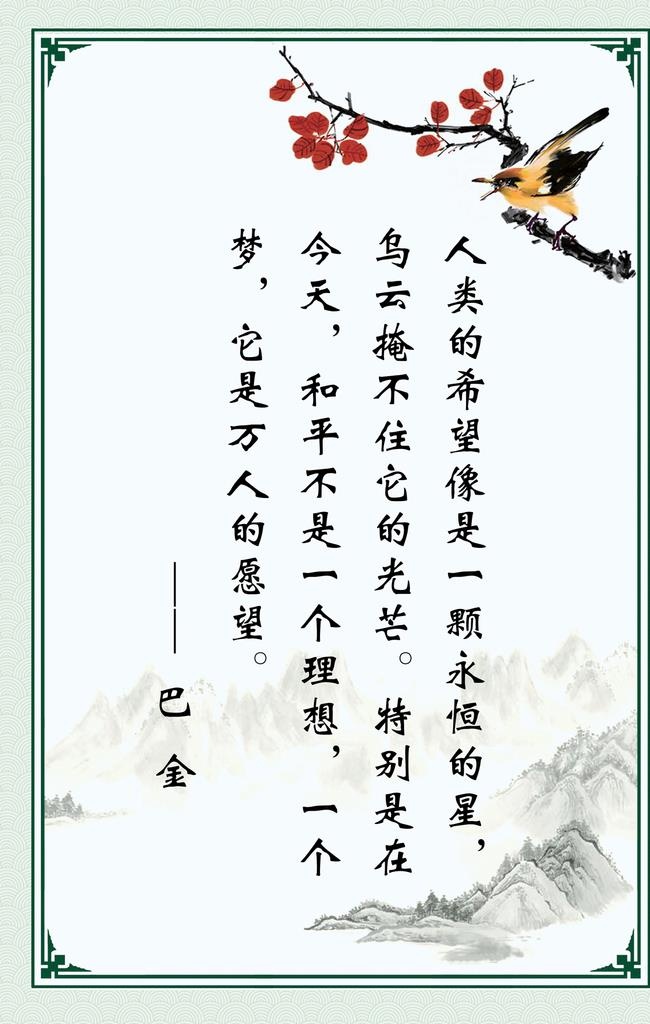 人类的希望像是一颗永恒的星，
乌云掩不住它的光芒。特别是在
今天，和平不是一个理想，一个
梦，它是万人的愿望。
——巴金